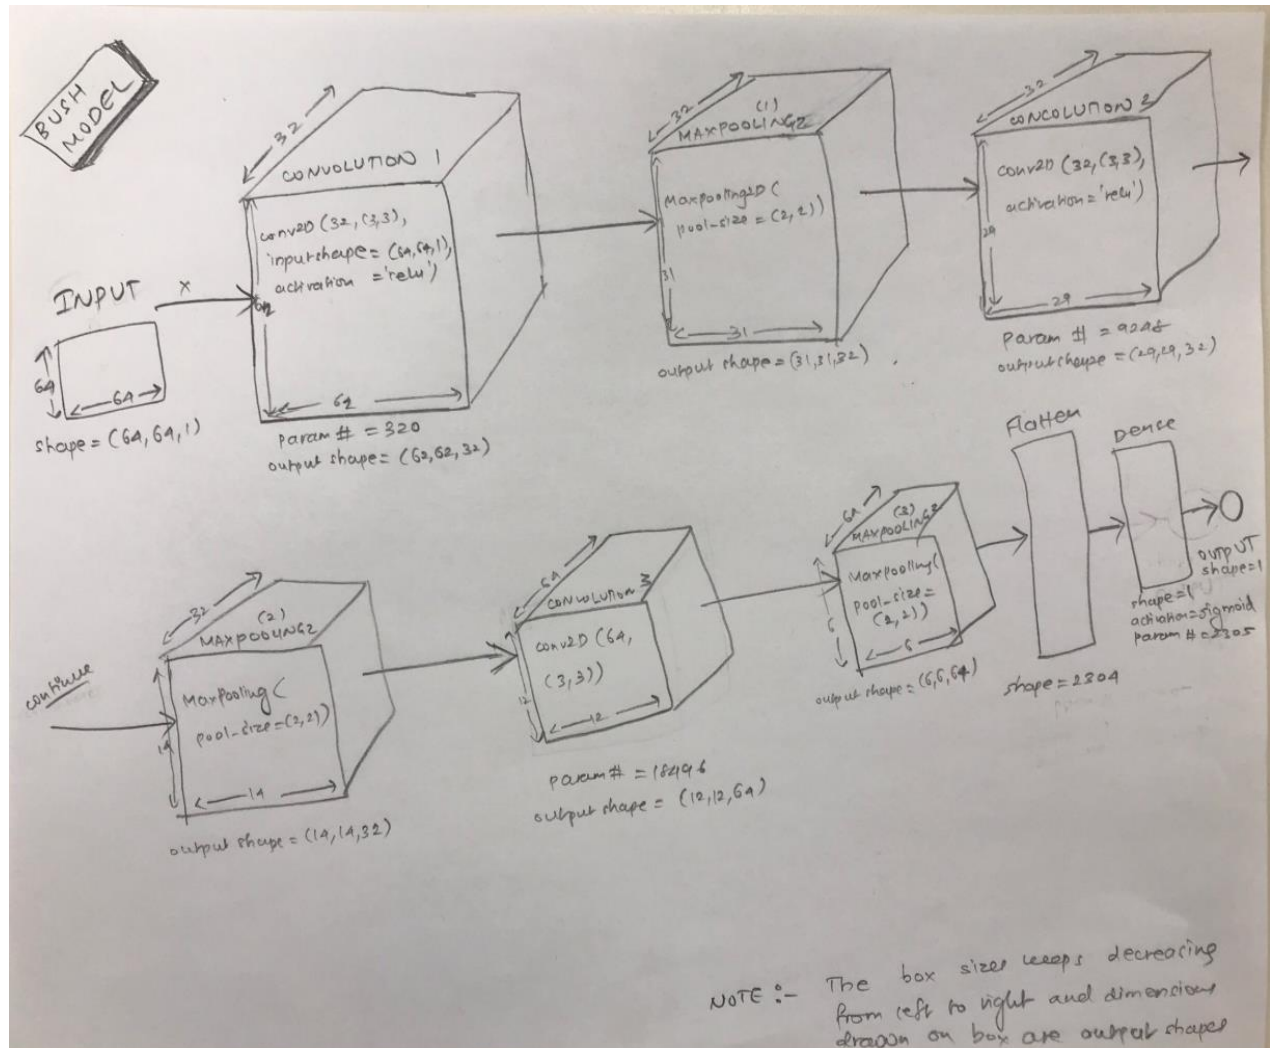 BUSH
MODEL
32
CONVOLUTION 1
conv2D (32, (3,3),
inputshape = (64,64,1),
activation = 'relu')
62
62
param # = 320
output shape = (62,62,32)
INPUT
x
64
64
shape = (64,64,1)
32
(1)
MAXPOOLING2
Maxpooling2D (
pool-size = (2,2))
31
31
output shape = (31,31,32)
32
CONCOLUTION 2
conv2D (32, (3,3),
activation = 'relu')
29
29
param # = 9248
output shape = (29,29,32)
continue
32
(2)
MAXPOOLING2
MaxPooling (
pool-size = (2,2))
14
14
output shape = (14,14,32)
64
CONVOLUTION 3
conv2D (64,
(3,3))
12
12
param # = 18496
output shape = (12,12,64)
64
(3)
MAXPOOLING2
Maxpooling(
pool-size =
(2,2))
6
6
output shape = (6,6,64)
Flatten
shape = 2304
Dense
shape=1
activation=sigmoid
param # = 2305
OUTPUT
shape=1
NOTE :- The box sizes keeps decreasing
from left to right and dimensions
drawn on box are output shapes